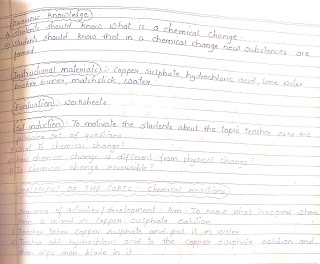 (Previous knowledge)
Students should know what is a chemical change.
Students should know that in a chemical change new substances are
formed
(Instructional materials): Copper sulphate, hydrochloric acid, lime water
beaker burner, matchstick, water
(Evaluation): worksheets
(Set induction): To motivate the students about the topic teacher asks the
following set of questions
What is chemical change?
How chemical change is different from physical change?
Is chemical change reversible?
DEVELOPMENT OF THE TOPIC: Chemical reactions
Sequence of activities/development Aim: To know what happens when
iron is mixed in copper sulphate solution
Teacher takes copper sulphate and put it in water
Teacher adds hydrochloric acid to the copper sulphate solution and
then dips iron blade in it